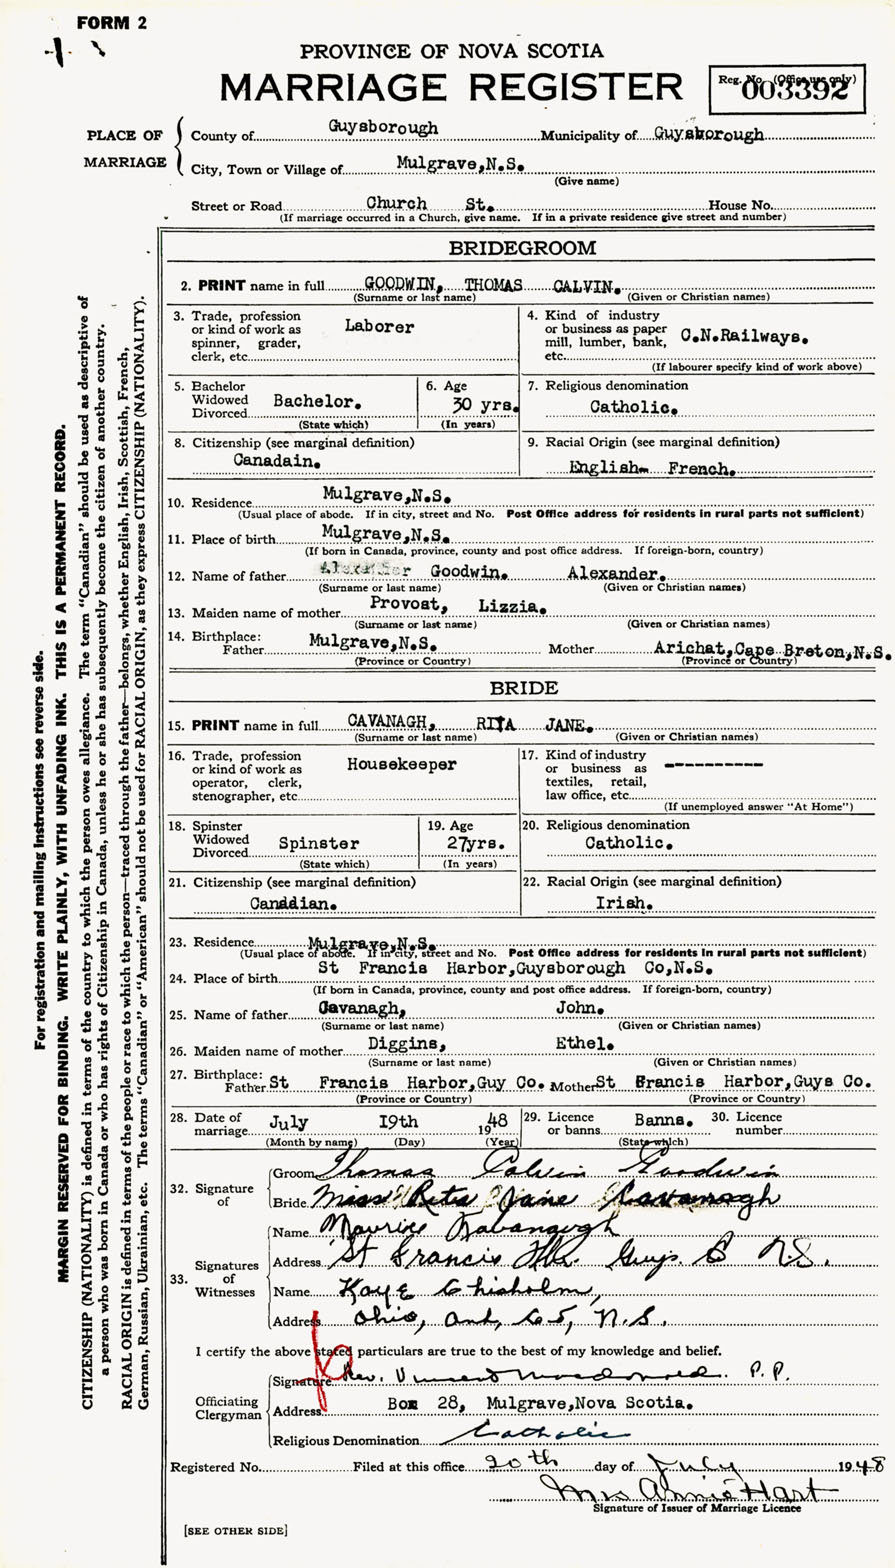 FORM 2
PROVINCE OF NOVA SCOTIA
MARRIAGE REGISTER
Reg. No. (Office use only)
003392
PLACE OF MARRIAGE
County of Guysborough Municipality of Guysborough
City, Town or Village of Mulgrave,N.S.
(Give name)
Street or Road Church St. House No.
(If marriage occurred in a Church, give name. If in a private residence give street and number)
BRIDEGROOM
2. PRINT name in full GOODWIN, THOMAS CALVIN.
(Surname or last name) (Given or Christian names)
3. Trade, profession or kind of work as spinner, grader, clerk, etc. Laborer
4. Kind of industry or business as paper mill, lumber, bank, etc. C.N.Railways.
(If labourer specify kind of work above)
5. Bachelor Widowed Divorced Bachelor.
(State which)
6. Age 30 yrs.
(In years)
7. Religious denomination
Catholic.
8. Citizenship (see marginal definition)
Canadain.
9. Racial Origin (see marginal definition)
English- French.
10. Residence Mulgrave,N.S.
(Usual place of abode. If in city, street and No. Post Office address for residents in rural parts not sufficient)
11. Place of birth Mulgrave,N.S.
(If born in Canada, province, county and post office address. If foreign-born, country)
12. Name of father Goodwin. Alexander.
(Surname or last name) (Given or Christian names)
13. Maiden name of mother Provost, Lizzia.
(Surname or last name) (Given or Christian names)
14. Birthplace: Father Mulgrave,N.S. Mother Arichat,Cape Breton,N.S.
(Province or Country) (Province or Country)
BRIDE
15. PRINT name in full CAVANAGH, RITA JANE.
(Surname or last name) (Given or Christian names)
16. Trade, profession or kind of work as operator, clerk, stenographer, etc. Housekeeper
17. Kind of industry or business as textiles, retail, law office, etc. ----------
(If unemployed answer "At Home")
18. Spinster Widowed Divorced Spinster
(State which)
19. Age 27yrs.
(In years)
20. Religious denomination
Catholic.
21. Citizenship (see marginal definition)
Canadian.
22. Racial Origin (see marginal definition)
Irish.
23. Residence Mulgrave,N.S.
(Usual place of abode. If in city, street and No. Post Office address for residents in rural parts not sufficient)
24. Place of birth St Francis Harbor,Guysborough Co,N.S.
(If born in Canada, province, county and post office address. If foreign-born, country)
25. Name of father Cavanagh, John.
(Surname or last name) (Given or Christian names)
26. Maiden name of mother Diggins, Ethel.
(Surname or last name) (Given or Christian names)
27. Birthplace: Father St Francis Harbor,Guy Co. Mother St Francis Harbor,Guys Co.
(Province or Country) (Province or Country)
28. Date of marriage July I9th 1948
(Month by name) (Day) (Year)
29. Licence or banns Banns.
(State which)
30. Licence number
32. Signature of
Groom Thomas Calvin Goodwin
Bride Miss Rita Jane Kavanagh
33. Signatures of Witnesses
Name Maurice Kavanaugh
Address St Francis Hbr. Guys. Co N.S.
Name Kaye Chisholm,
Address Ohio, Ant, Co, N.S.
I certify the above stated particulars are true to the best of my knowledge and belief.
Officiating Clergyman
Signature Rev. Vincent Macdonald. P.P.
Address Box 28, Mulgrave,Nova Scotia.
Religious Denomination Catholic
Registered No. Filed at this office 20th day of July 1948
Mrs Annie Hart
Signature of Issuer of Marriage Licence
[SEE OTHER SIDE]
For registration and mailing instructions see reverse side.
MARGIN RESERVED FOR BINDING. WRITE PLAINLY, WITH UNFADING INK. THIS IS A PERMANENT RECORD.
CITIZENSHIP (NATIONALITY) is defined in terms of the country to which the person owes allegiance. The term "Canadian" should be used as descriptive of
a person who was born in Canada or who has rights of Citizenship in Canada, unless he or she has subsequently become the citizen of another country.
RACIAL ORIGIN is defined in terms of the people or race to which the person—traced through the father—belongs, whether English, Irish, Scottish, French,
German, Russian, Ukrainian, etc. The terms "Canadian" or "American" should not be used for RACIAL ORIGIN, as they express CITIZENSHIP (NATIONALITY).